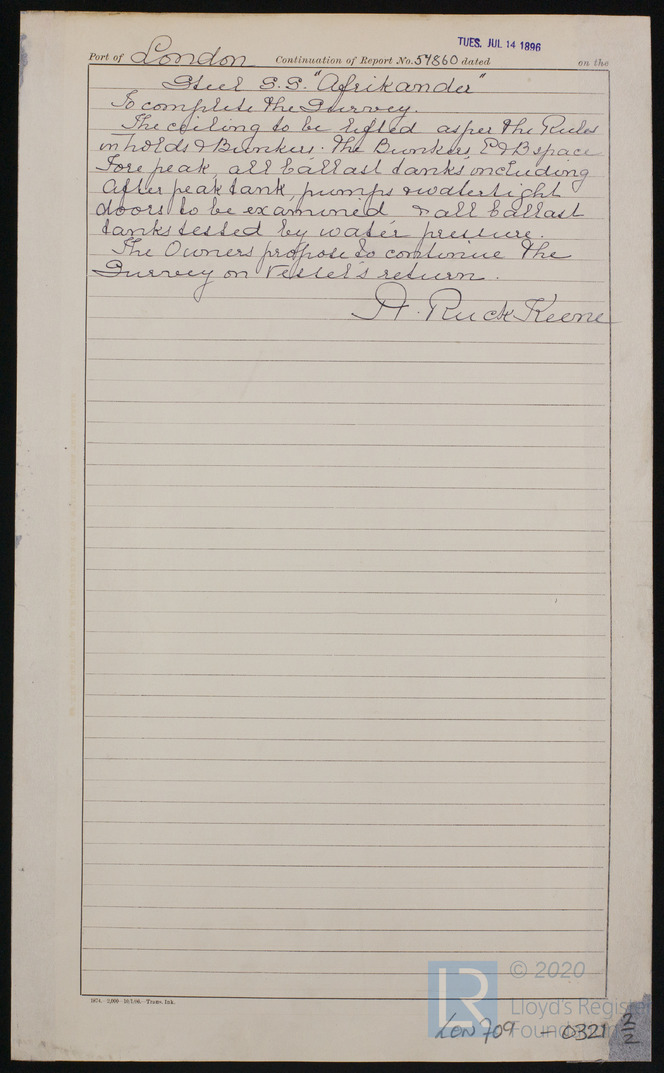 TUES. JUL 14 1896
Port of London Continuation of Report No. 57860 dated on the
Steel S.S. "Afrikander"
To complete the Survey.
The ceiling to be lifted as per the Rules
in holds & Bunkers. The Bunkers E&B space
Fore peak, all ballast tanks including
after peak tank, pumps & watertight
doors to be examined & all ballast
tanks tested by water pressure.
The Owners propose to continue the
Survey on Vessel's return.
H. Ruck Keene
1974. 2,000 Trans. Ink.
© 2020
LR Lloyd's Register
Foundation
LON 709 - 0321 2/2